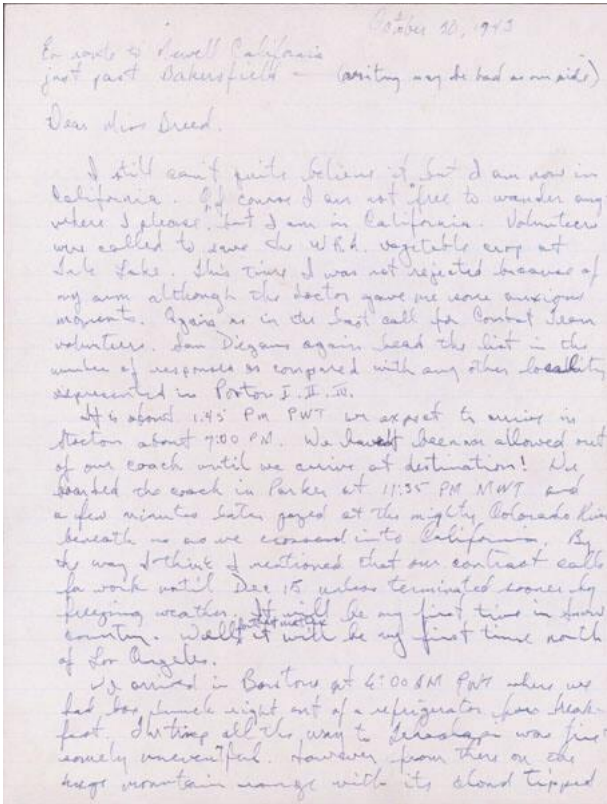 October 30, 1943
En route to Newell California
just past Bakersfield — (writing may be bad as on ride)
Dear Miss Breed.
I still can't quite believe it but I am now in
California. Of course I am not free to wander any
where I please, but I am in California. Volunteers
were called to save the W.R.A. vegetable crop at
Tule Lake. This time I was not rejected because of
my arm although the doctor gave me some anxious
moments. Again as in the last call for Combat Team
volunteers. San Diegans again head the list in the
number of responses as compared with any other locality
represented in Poston I. II. III.
It is about 1:45 PM PWT we expect to arrive in
Stockton about 7:00 PM. We allowed out
of our coach until we arrive at destination! We
boarded the coach in Parker at 11:35 PM MWT and
a few minutes later gazed at the mighty Colorado River
beneath us as we crossed into California. By
the way I think I mentioned that our contract calls
for work until Dec 15 unless terminated sooner by
freezing weather. It will be my first time in snow
country. Well for that matter it will be my first time north
of Los Angeles.
We arrived in Barstow at 6:00 AM PWT where we
had box lunch right out of a refrigerator for break-
fast. all the way to was
uneventful. However from there on the
huge mountain range with its cloud tipped